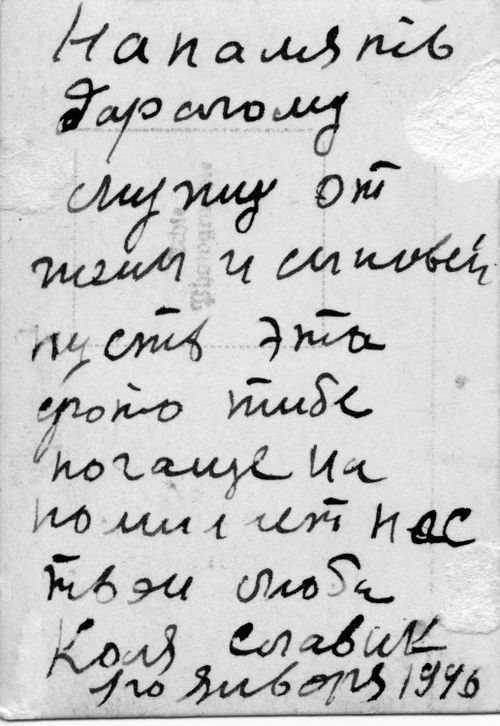 На память
дарогому
мужу от
жены и сыновей
пусть эта
фото тибе
почаще на
поминает нас
твои люба
Коля славик
1го января 1946